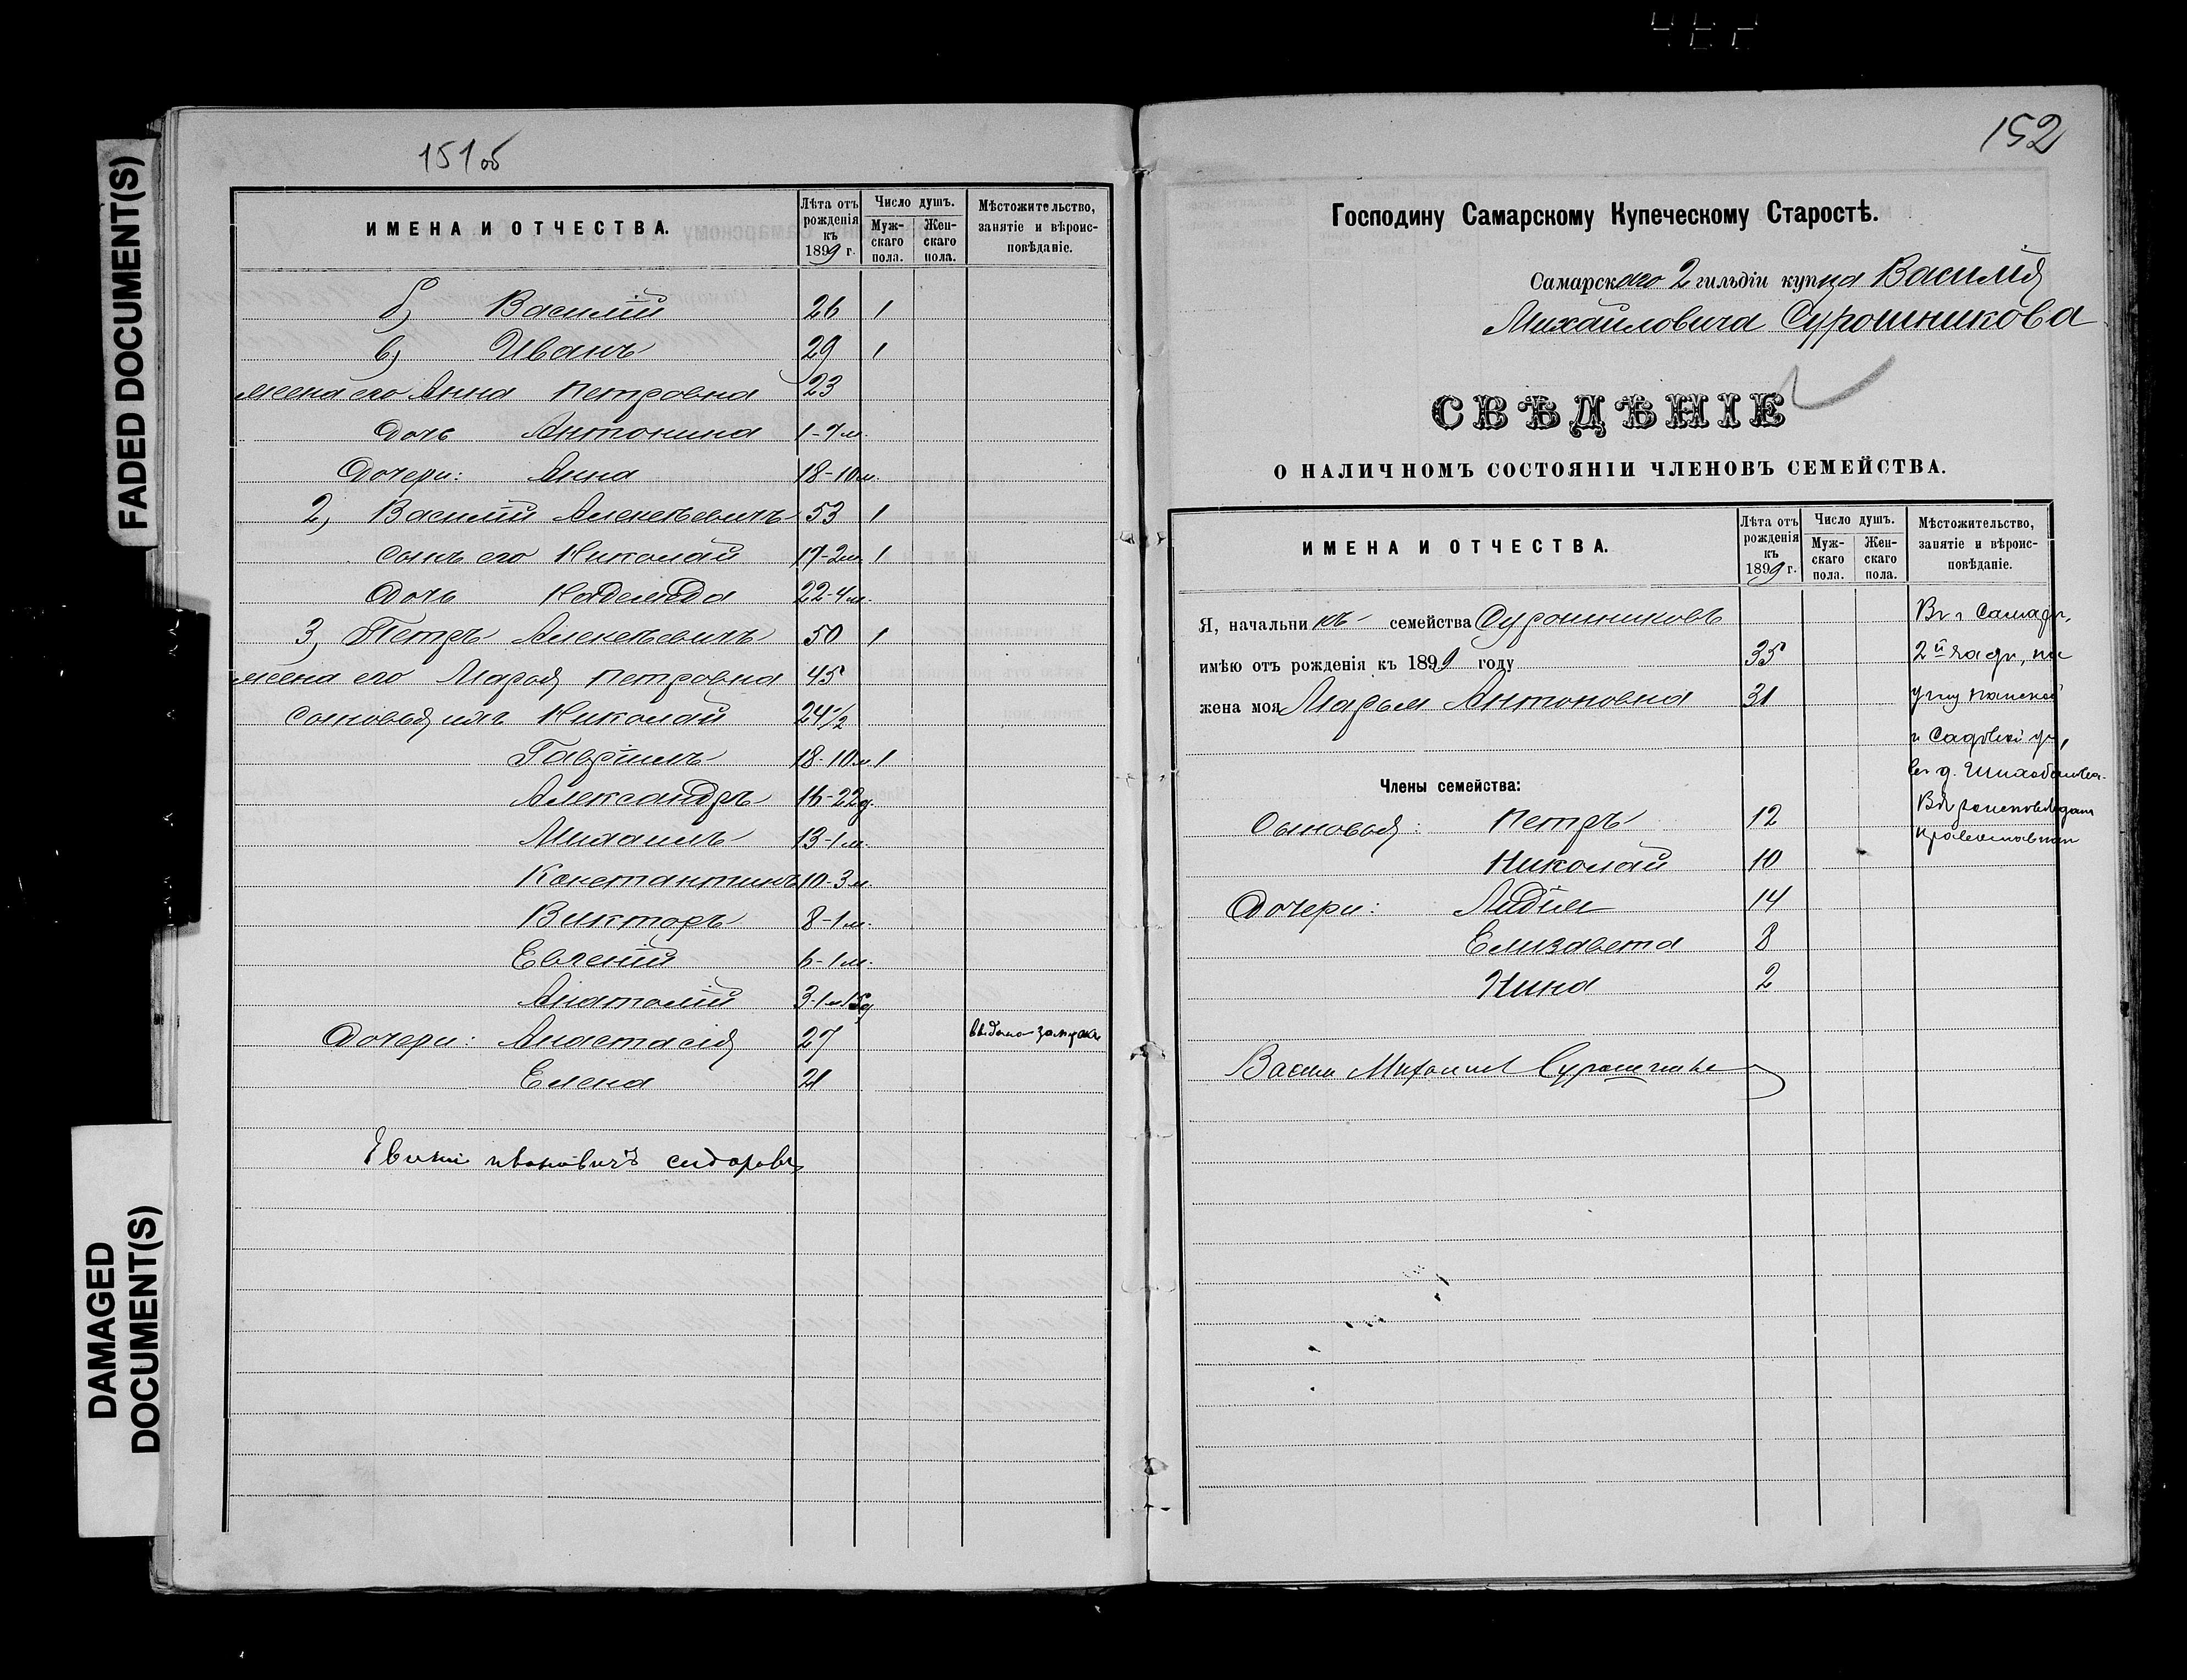 FADED DOCUMENT(S)
DAMAGED
DOCUMENT(S)
151об
ИМЕНА И ОТЧЕСТВА.
Лѣта отъ рожденія къ 1899 г.
Число душъ.
Мужскаго пола.
Женскаго пола.
Мѣстожительство, занятіе и вѣроисповѣданіе.
б) Василій 26 1
в) Иванъ 29 1
жена его Анна Петровна 23
Дочь Антонина 1-7 м.
Дочери: Анна 18-10 м.
2) Василій Алексѣевичъ 53 1
сынъ его Николай 17-2 м. 1
Дочь Надежда 22-4 м.
3) Петръ Алексѣевичъ 50 1
жена его Марья Петровна 45
Сыновья ихъ Николай 24 1/2
Гавріилъ 18-10 м 1
Александръ 16-22 д.
Михаилъ 13-1 м.
Константинъ 10-3 м.
Викторъ 8-1 м.
Евгеній 6-1 м.
Анатолій 3-1 м 15 д
Дочери: Анастасія 27
Елена 21
ивановичъ сидоровъ
152
Господину Самарскому Купеческому Старостѣ.
Самарскаго 2 гильдіи купца Василія
Михайловича Сурошникова
СВѢДѢНІЕ
О НАЛИЧНОМЪ СОСТОЯНІИ ЧЛЕНОВЪ СЕМЕЙСТВА.
ИМЕНА И ОТЧЕСТВА.
Лѣта отъ рожденія къ 1899 г.
Число душъ.
Мужскаго пола.
Женскаго пола.
Мѣстожительство, занятіе и вѣроисповѣданіе.
Я, начальникъ семейства Сурошниковъ
имѣю отъ рожденія къ 1899 году 35
жена моя Марья Антоновна 31
Члены семейства:
Сыновья: Петръ 12
Николай 10
Дочери: Лидія 14
Елизавета 8
Нина 2
Въ г Самарѣ,
2й части, на
углу Панской
и Садовой ул,
въ д. Шихобалова
Вѣроисповѣданія
православнаго